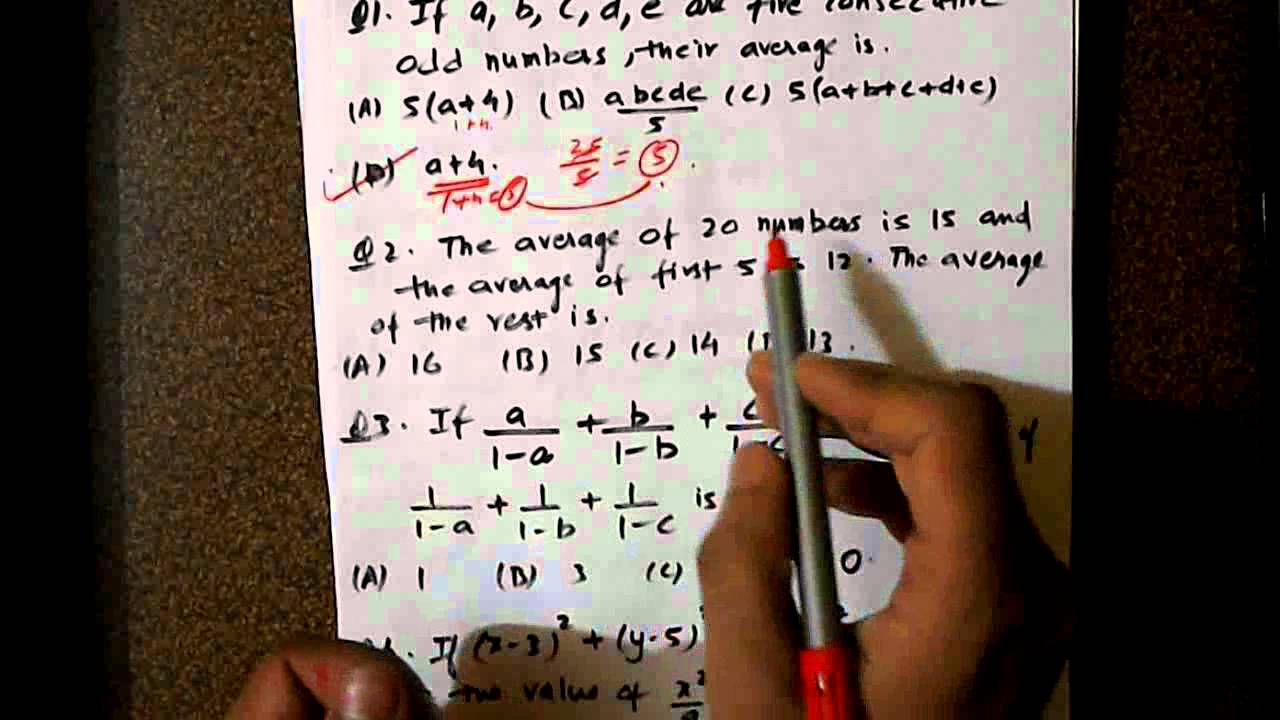 Q1. If a, b, c, d, e are five consecutive
odd numbers, their average is.
(A) 5(a+4) (B) abcde/5 (C) 5(a+b+c+d+e)
1+4
(D) a+4. 25/5 = 5
1+4=5
Q2. The average of 20 numbers is 15 and
the average of first 5 12. The average
of the rest is.
(A) 16 (B) 15 (C) 14 13.
Q3. If a/1-a + b/1-b +
1/1-a + 1/1-b + 1/1-c is
(A) 1 (B) 3 (C) 0.
If (x-3)² + (y-5)
the value of